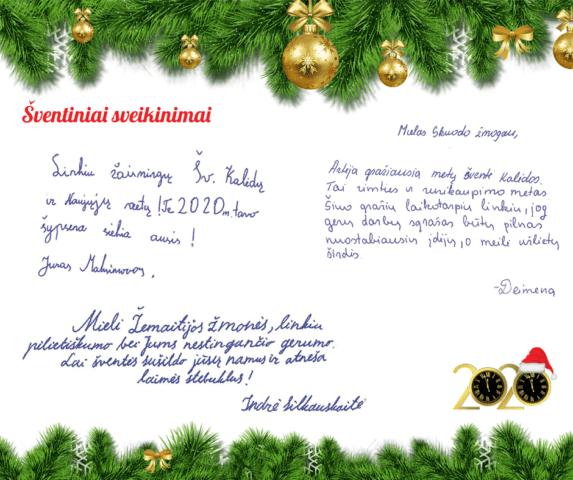 Šventiniai sveikinimai
Linkiu žaismingų Šv. Kalėdų
ir Naujųjų metų! Te 2020 m. tavo
šypsena siekia ausis!
Juras
Mielas Skuodo žmogau,
Artėja gražiausia metų šventė Kalėdos.
Tai rimties ir susikaupimo metas
Šiuo gražiu laikotarpiu linkiu, jog
gerų darbų sąrašas būtų pilnas
nuostabiausių idėjų, o meilė užlietų
širdis.
-Deimena
Mieli Žemaitijos žmonės, linkiu
pilietiškumo bei Jums nestingančio gerumo.
Lai šventės sušildo jūsų namus ir atneša
laimės stebuklus!
Indrė Silkauskaitė
2020